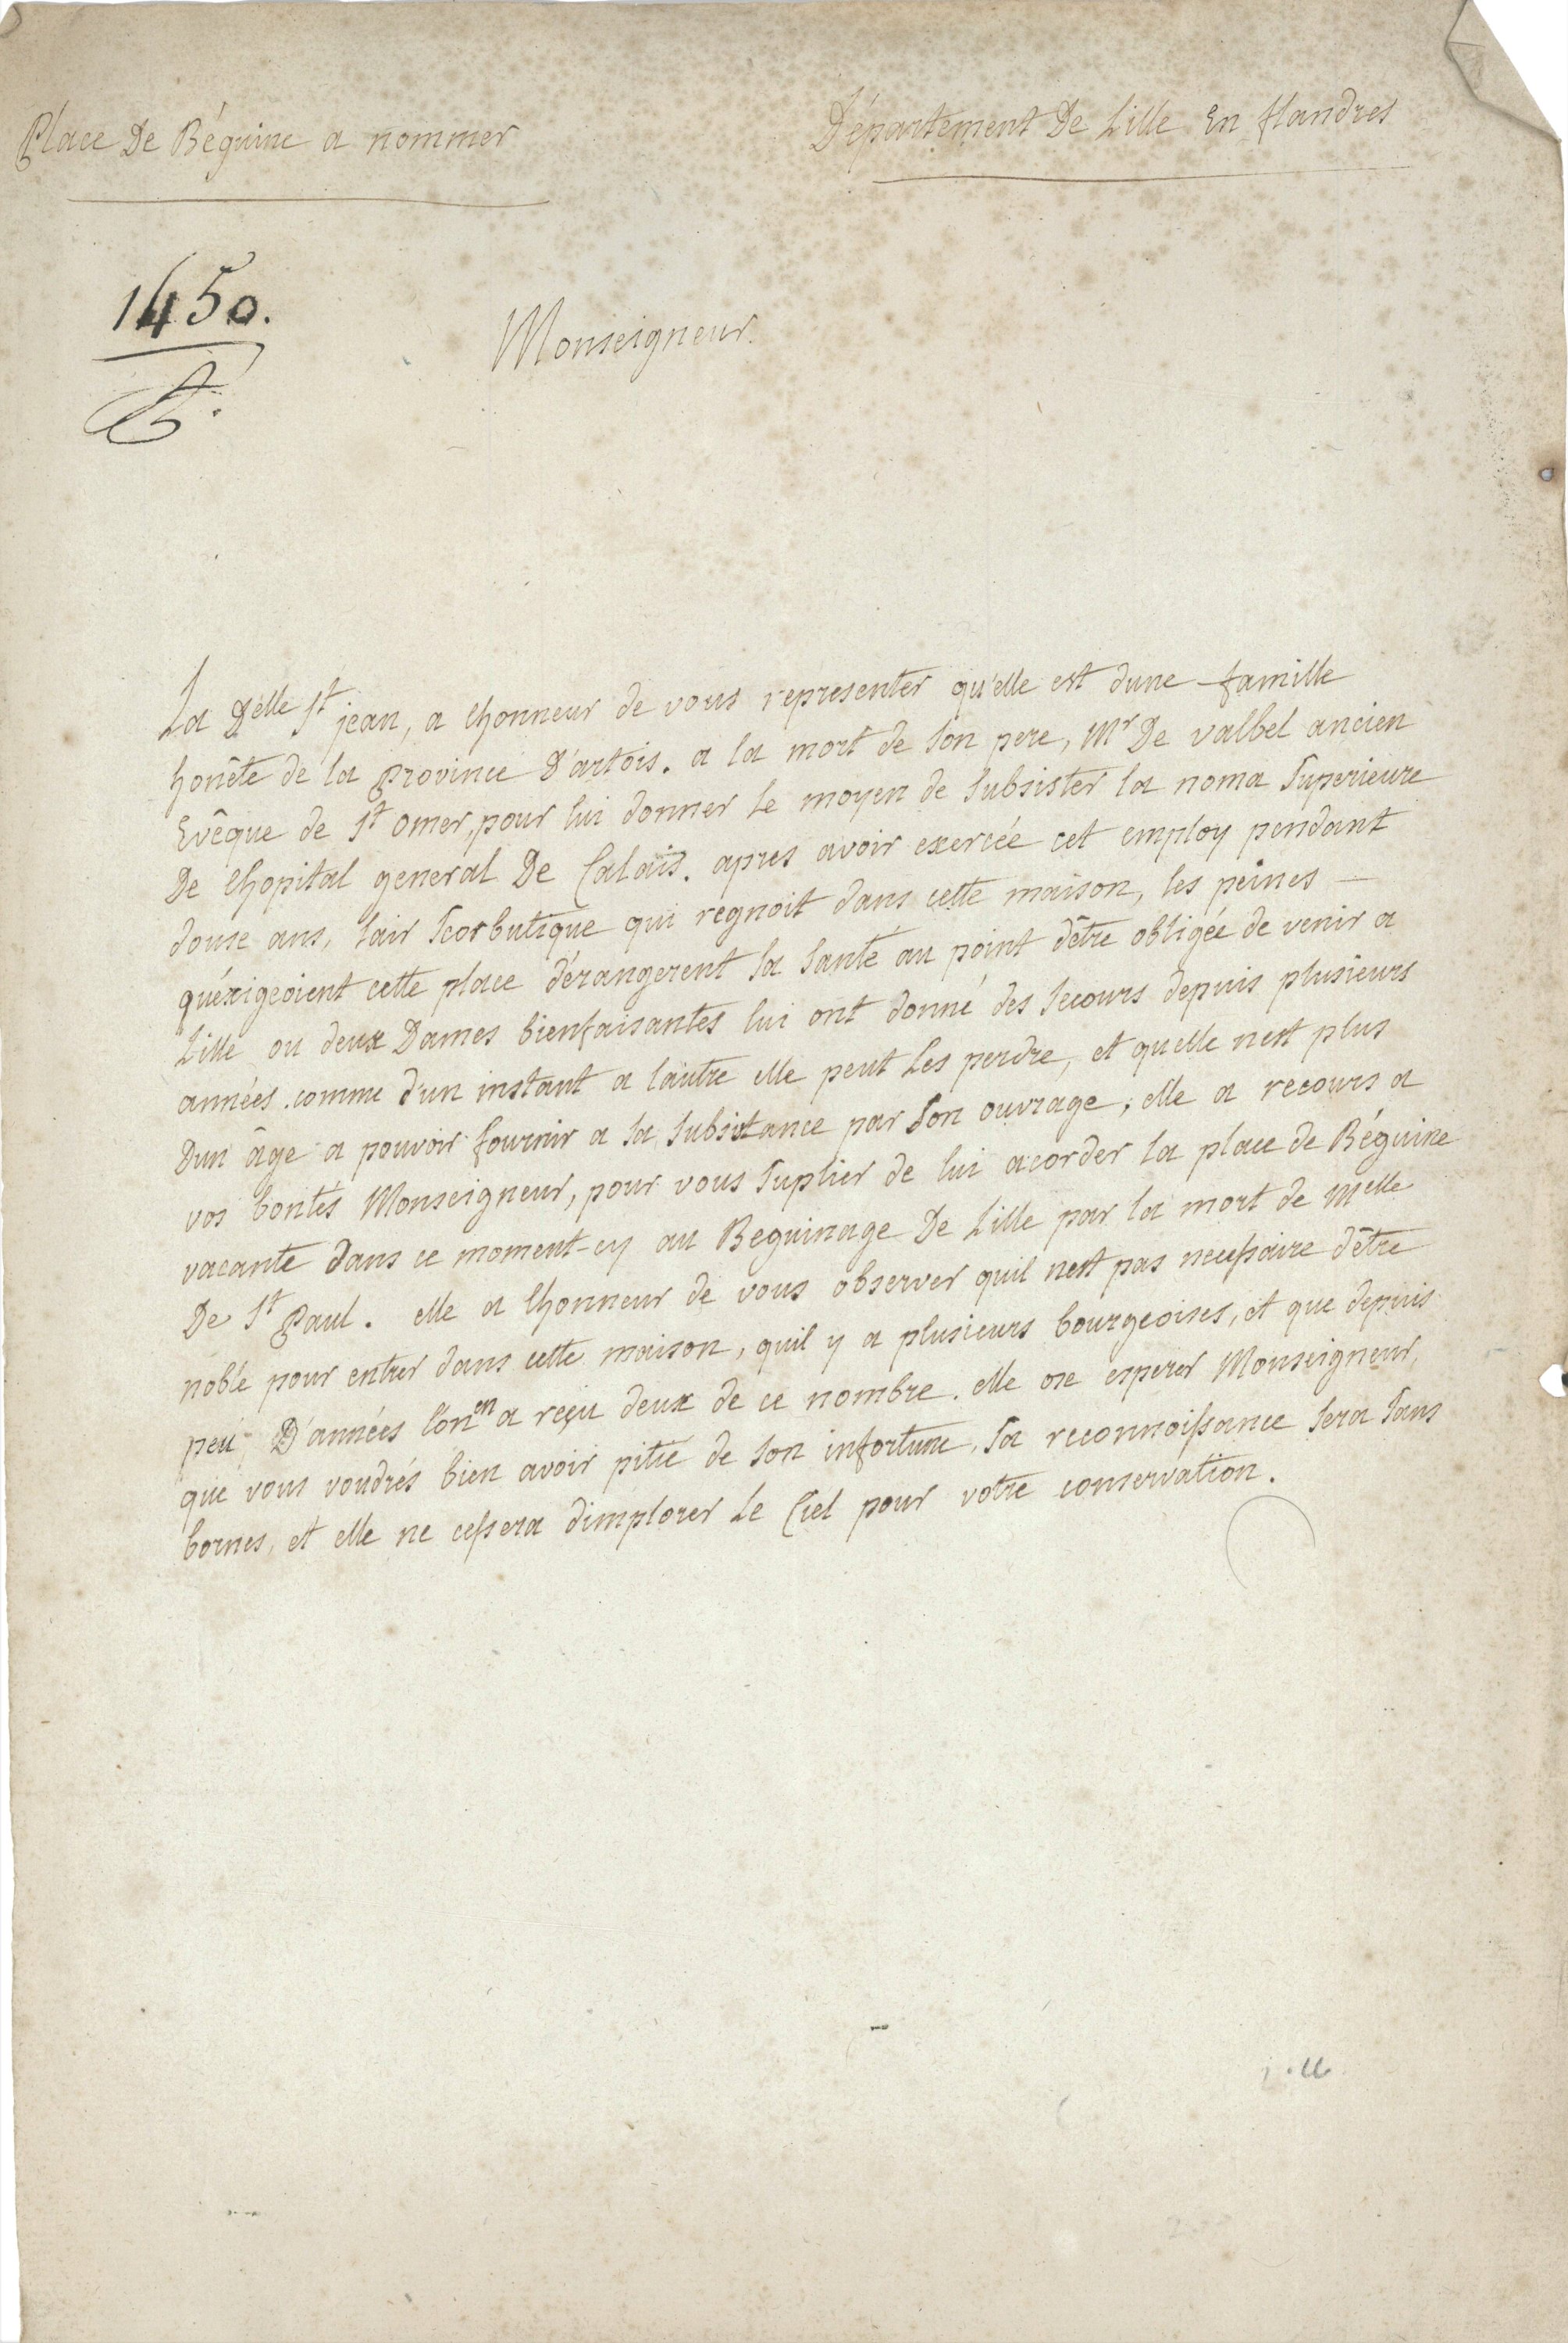 Place De Béguine a nommer
Département De Lille En flandres
1450.
Monseigneur.
La Delle St jean, a lhonneur de vous representer qu'elle est dune famille
honête de la province D'artois. a la mort de son pere, Mr De valbel ancien
Evêque de St omer, pour lui donner le moyen de subsister la noma superieure
De lhopital general De Calais. apres avoir exercée cet employ pendant
douse ans, lair scorbutique qui regnoit dans cette maison, les peines
quéxigeoient cette place dérangerent sa santé au point dêtre obligée de venir a
Lille ou deux Dames bienfaisantes lui ont donné des secours depuis plusieurs
années. comme d'un instant a lautre elle peut les perdre, et quelle nest plus
Dun âge a pouvoir fournir a sa subsistance par son ouvrage, elle a recours a
vos bontés Monseigneur, pour vous suplier de lui acorder la place de Béguine
vacante dans ce moment-cy au Beguinage De Lille par la mort de Melle
De St Paul. elle a lhonneur de vous observer quil nest pas necessaire dêtre
noble pour entrer dans cette maison, quil y a plusieurs bourgeoises, et que depuis
peu D'années l'on en a reçu deux de ce nombre. elle ose esperer Monseigneur,
que vous voudrés bien avoir pitié de son infortune, sa reconnoissance sera sans
bornes, et elle ne cessera dimplorer le Ciel pour votre conservation.